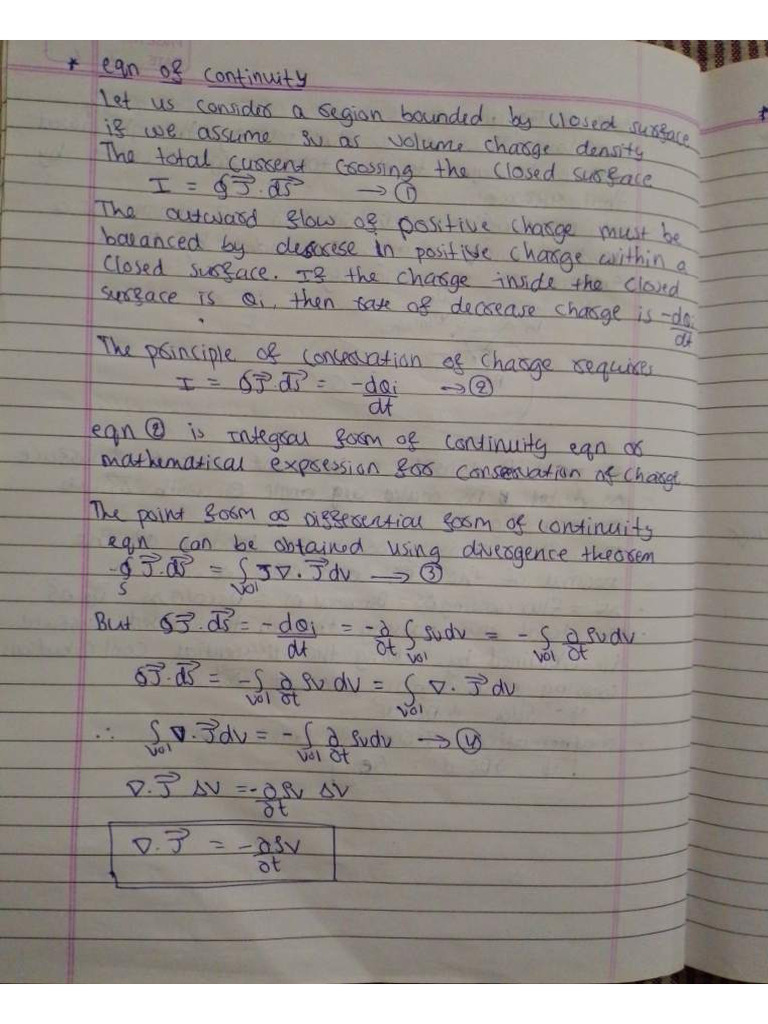 * eqn of continuity
Let us consider a region bounded by closed surface
if we assume ρv as volume charge density
The total current crossing the closed surface
I = ∮J⃗.ds⃗ → ①
The outward flow of positive charge must be
balanced by decrese in positive charge within a
closed surface. If the charge inside the closed
surface is Qi, then rate of decrease charge is -dQi/dt
The principle of conservation of charge requires
I = ∮J⃗.ds⃗ = -dQi/dt → ②
eqn ② is Integral form of continuity eqn or
mathematical expression for conservation of charge
The point form or Differential form of continuity
eqn can be obtained using divergence theorem
-∮s J⃗.ds⃗ = ∫vol J∇.J⃗dv → ③
But ∮J⃗.ds⃗ = -dQi/dt = -∂/∂t ∫vol ρvdv = -∫vol ∂/∂t ρvdv
∮J⃗.ds⃗ = -∫vol ∂/∂t ρv dv = ∫vol ∇.J⃗dv
∴ ∫vol ∇.J⃗dv = -∫vol ∂/∂t ρvdv → ④
∇.J⃗ ΔV = -∂ρv/∂t ΔV
∇.J⃗ = -∂ρv/∂t